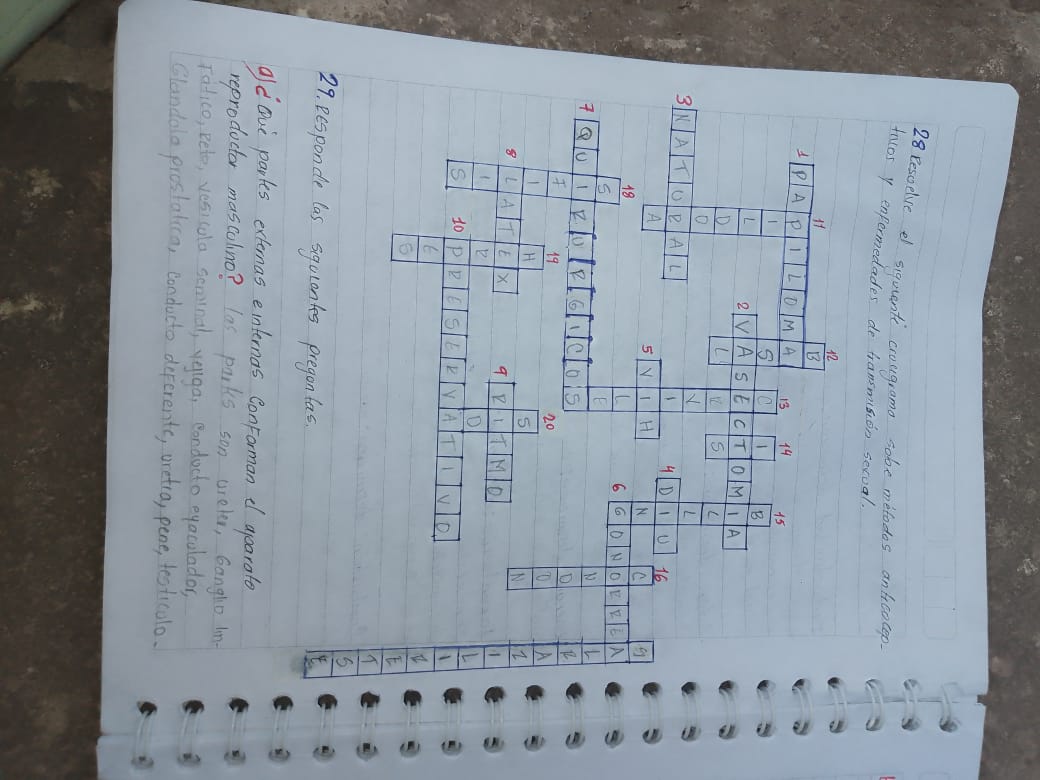 28 Resuelve el siguiente crucigrama sobe métodos anticocep-
tivos y enfermedades de transmisión sexual.
1 PAPILOMA
11 PILDORA
12 BASAL
2 VASECTOMIA
13
14 ITS
15 BILLING
3 NATURAL
5 VIH
4 DIU
16 CONDON
6 GONORREA
18 SIFILIS
7 QUIRURGICOS
19 HERPES
8 LATEX
20 SIDA
9 RITMO
10 PRESERVATIVO
29. Responde las siguientes preguntas.
a) ¿Qué partes externas e internas conforman el aparato
reproductor masculino? las partes son uréter, Ganglio lin-
fatico, recto, vesicula seminal, vejiga, conducto eyaculador,
Glandola prostatica, conducto deferente, uretra, pene, testiculo.